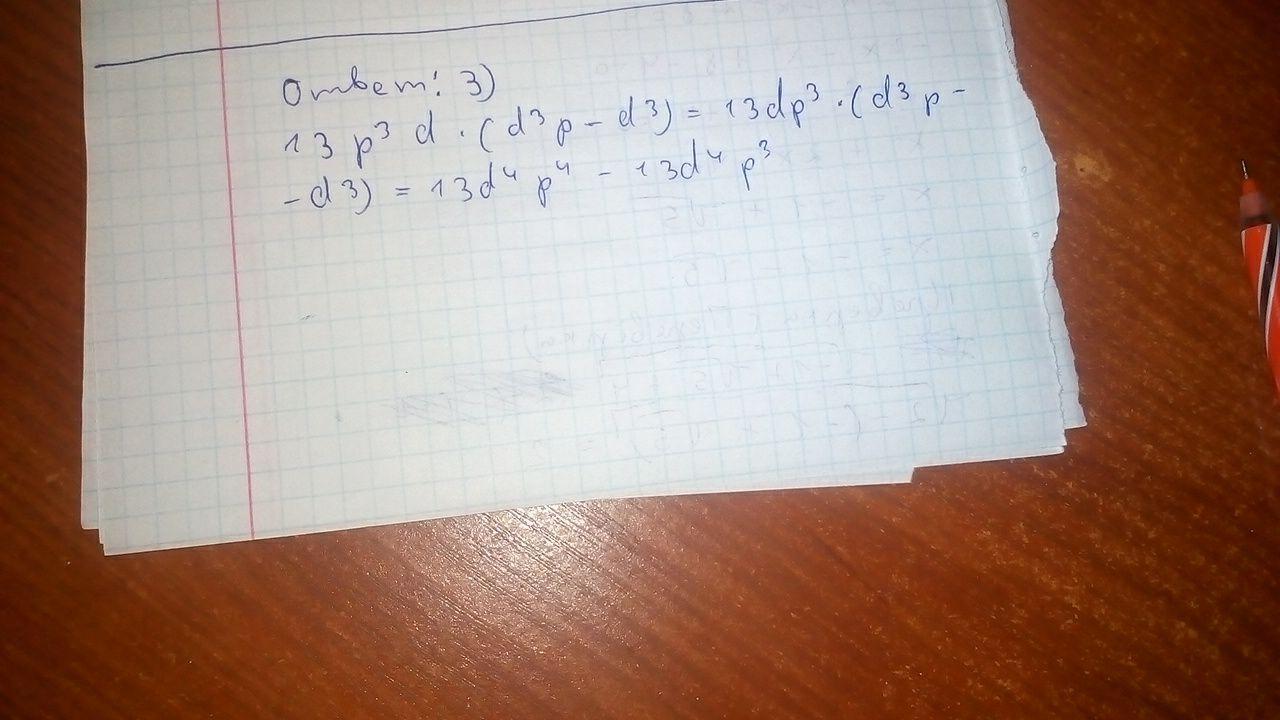 Ответ: 3)
13 p³ d · (d³p - d³) = 13dp³ · (d³p -
- d³) = 13d⁴ p⁴ - 13d⁴ p³